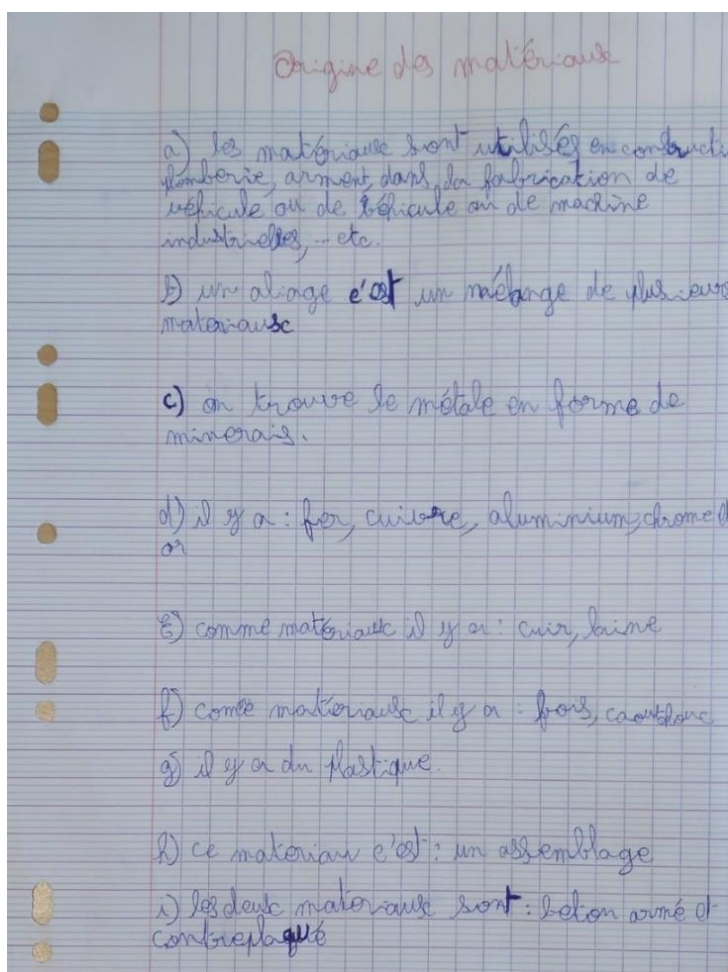 Origine des matériaux
a) les matériaux sont utilisés en constructi
plomberie, arment, dans la fabrication de
véhicule ou de véhicule ou de machine
industrielles, ... etc.
b) un aliage c'est un mélange de plusieurs
materiaux
c) on trouve le métale en forme de
minerais.
d) il y a : fer, cuivre, aluminium, chrome
or
E) comme matériaux il y a : cuir, laine
f) come matériaux il y a : bois, caoutchouc
g) il y a du plastique.
h) ce materiau c'est : un assemblage
i) les deux materiaux sont : beton armé et
contreplaqué